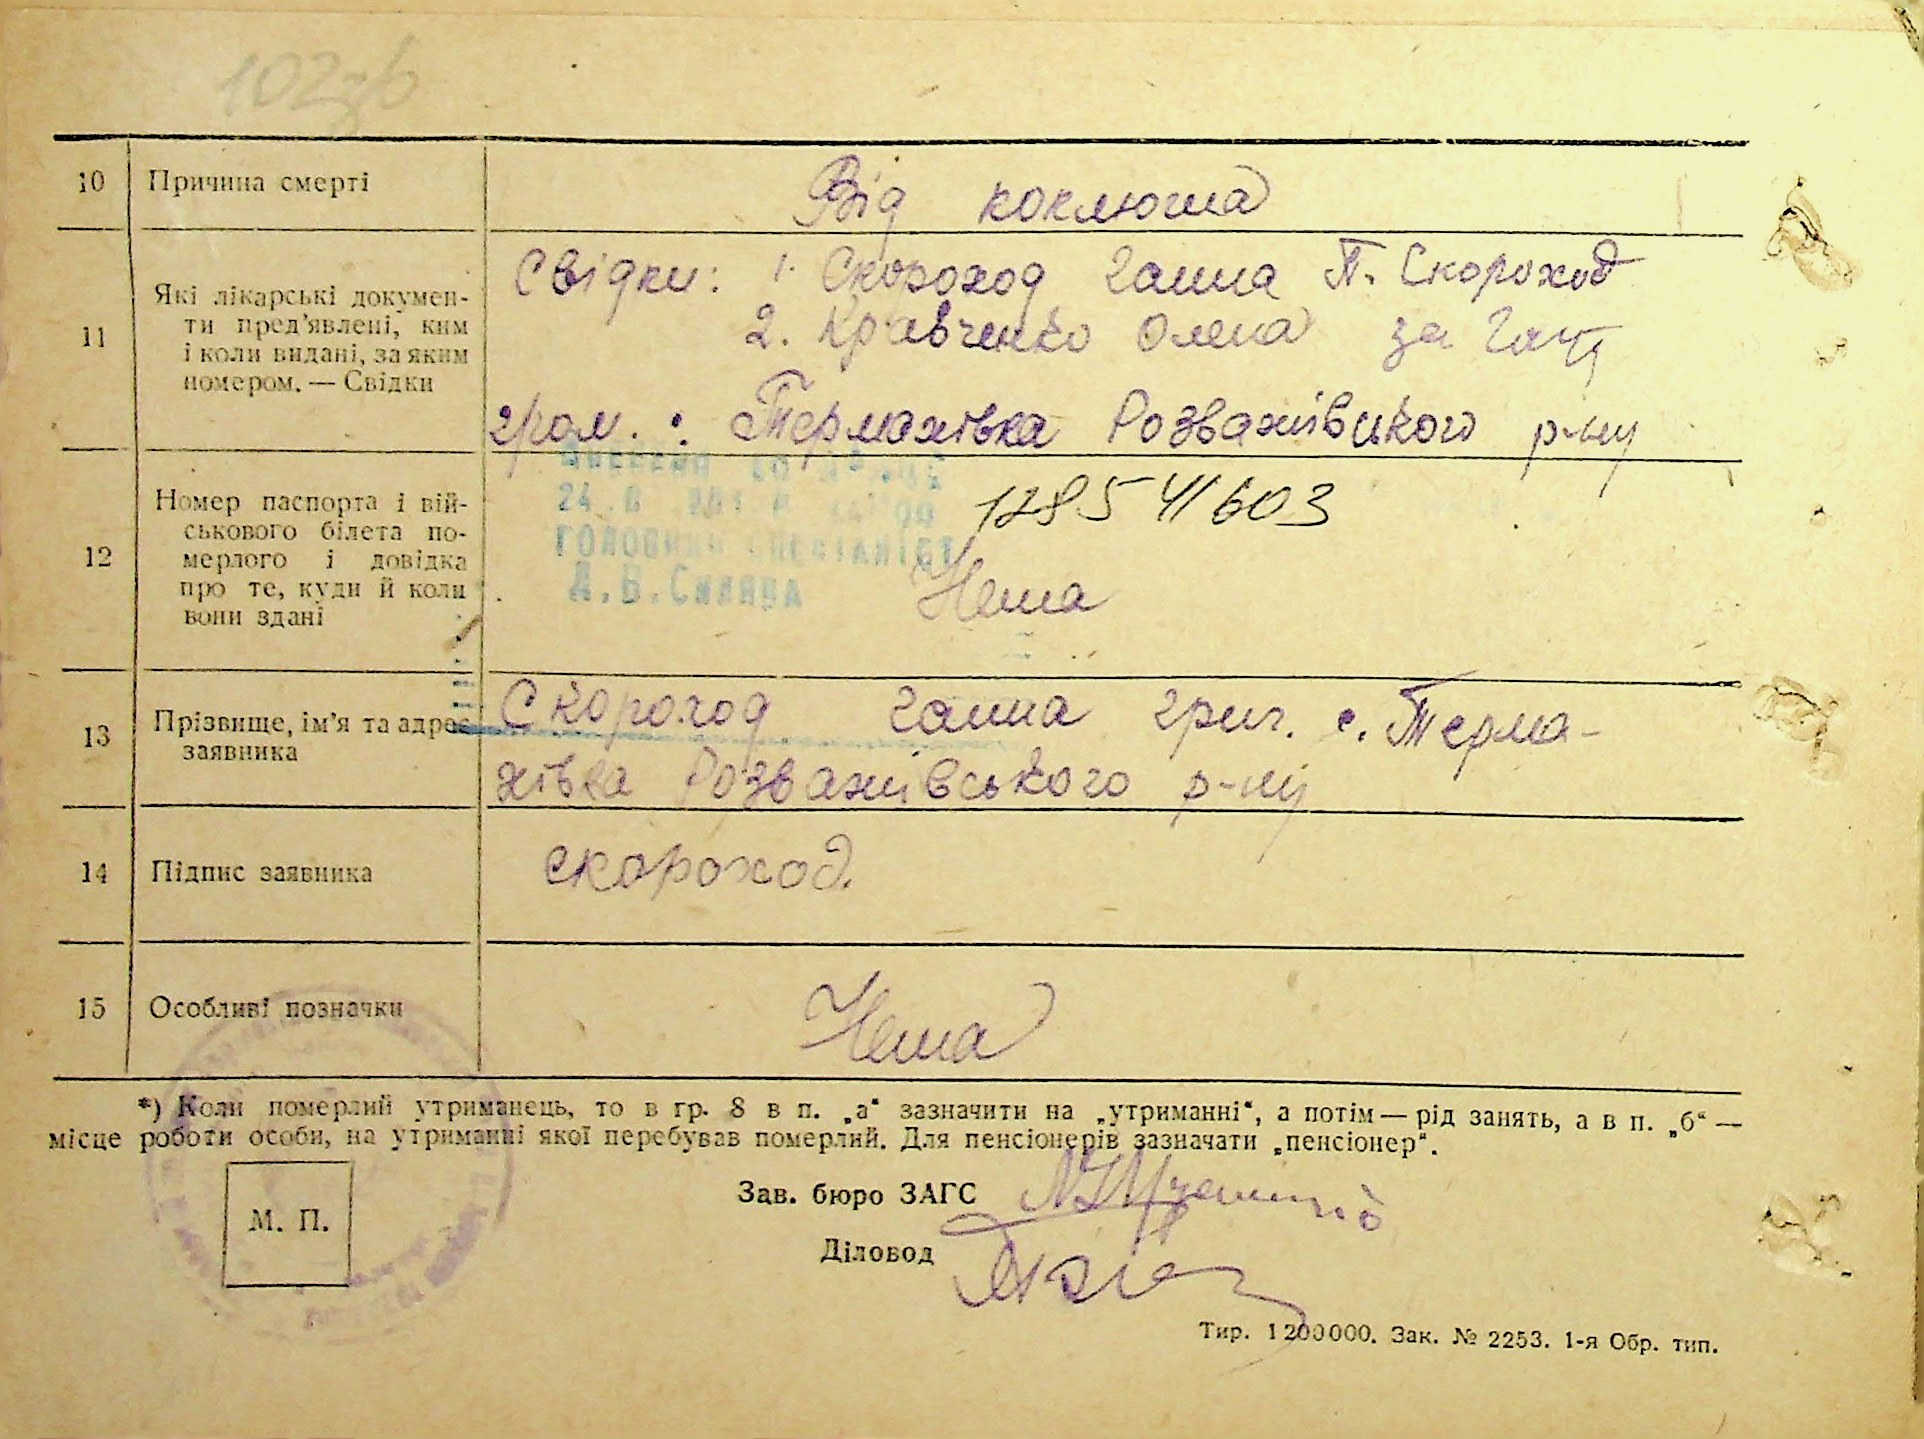 10 Причина смерті Від коклюша
11 Які лікарські докумен-
ти пред'явлені, ким
і коли видані, за яким
номером. — Свідки
Свідки: 1. Скороход Ганна П. Скороход
2. Кравченко Олена за
гром.: Термахівка Розважівського р-ну
12 Номер паспорта і вій-
ськового білета по-
мерлого і довідка
про те, куди й коли
вони здані
ГОЛОВНИЙ СПЕЦІАЛІСТ
1285 41603
Нема
13 Прізвище, ім'я та адрес
заявника
Скороход Ганна Григ. с. Терма-
хівка Розважівського р-ну
14 Підпис заявника скороход.
15 Особливі позначки Нема
*) Коли померлий утриманець, то в гр. 8 в п. „а“ зазначити на „утриманні“, а потім — рід занять, а в п. „б“ —
місце роботи особи, на утриманні якої перебував померлий. Для пенсіонерів зазначати „пенсіонер“.
М. П.
Зав. бюро ЗАГС
Діловод
Тир. 1200000. Зак. № 2253. 1-я Обр. тип.